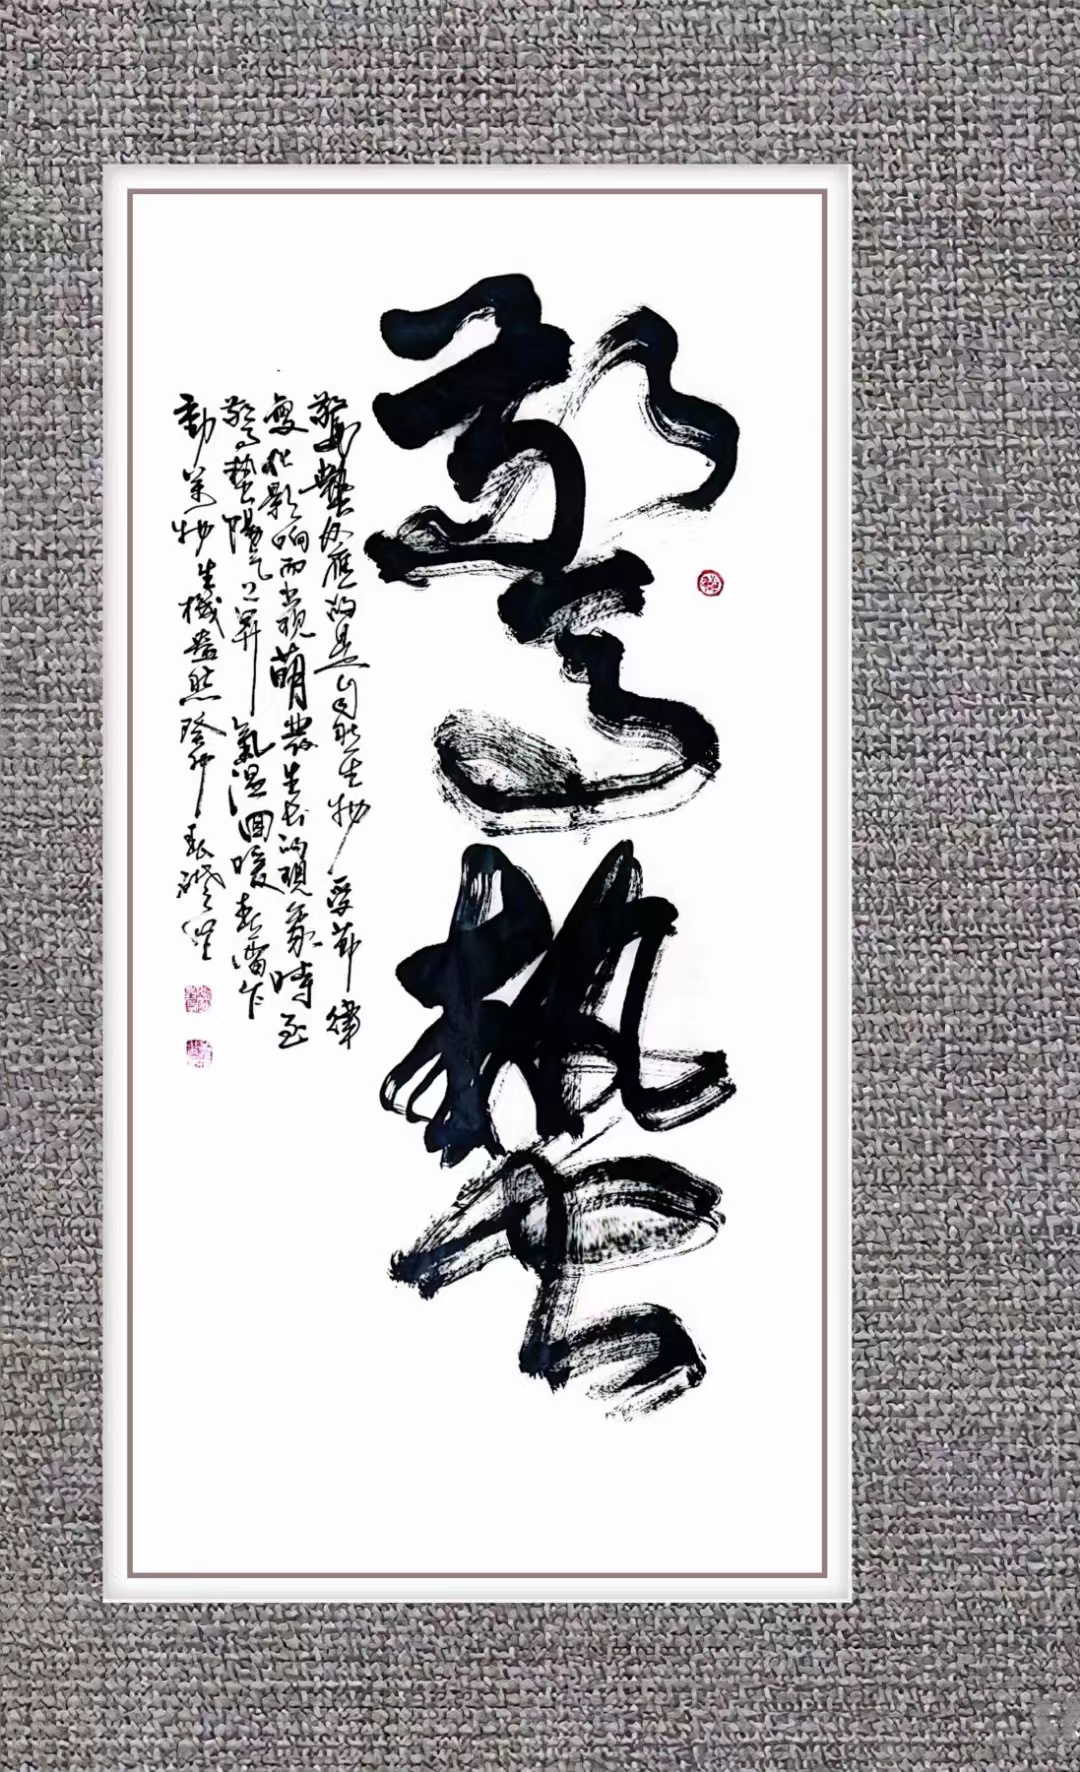 驚蟄
驚蟄反應的是自然生物受节律
變化影响而出现萌發生长的现象時至
驚蟄陽气上昇氣温回暖春雷乍
動萬物生機盎然癸卯春